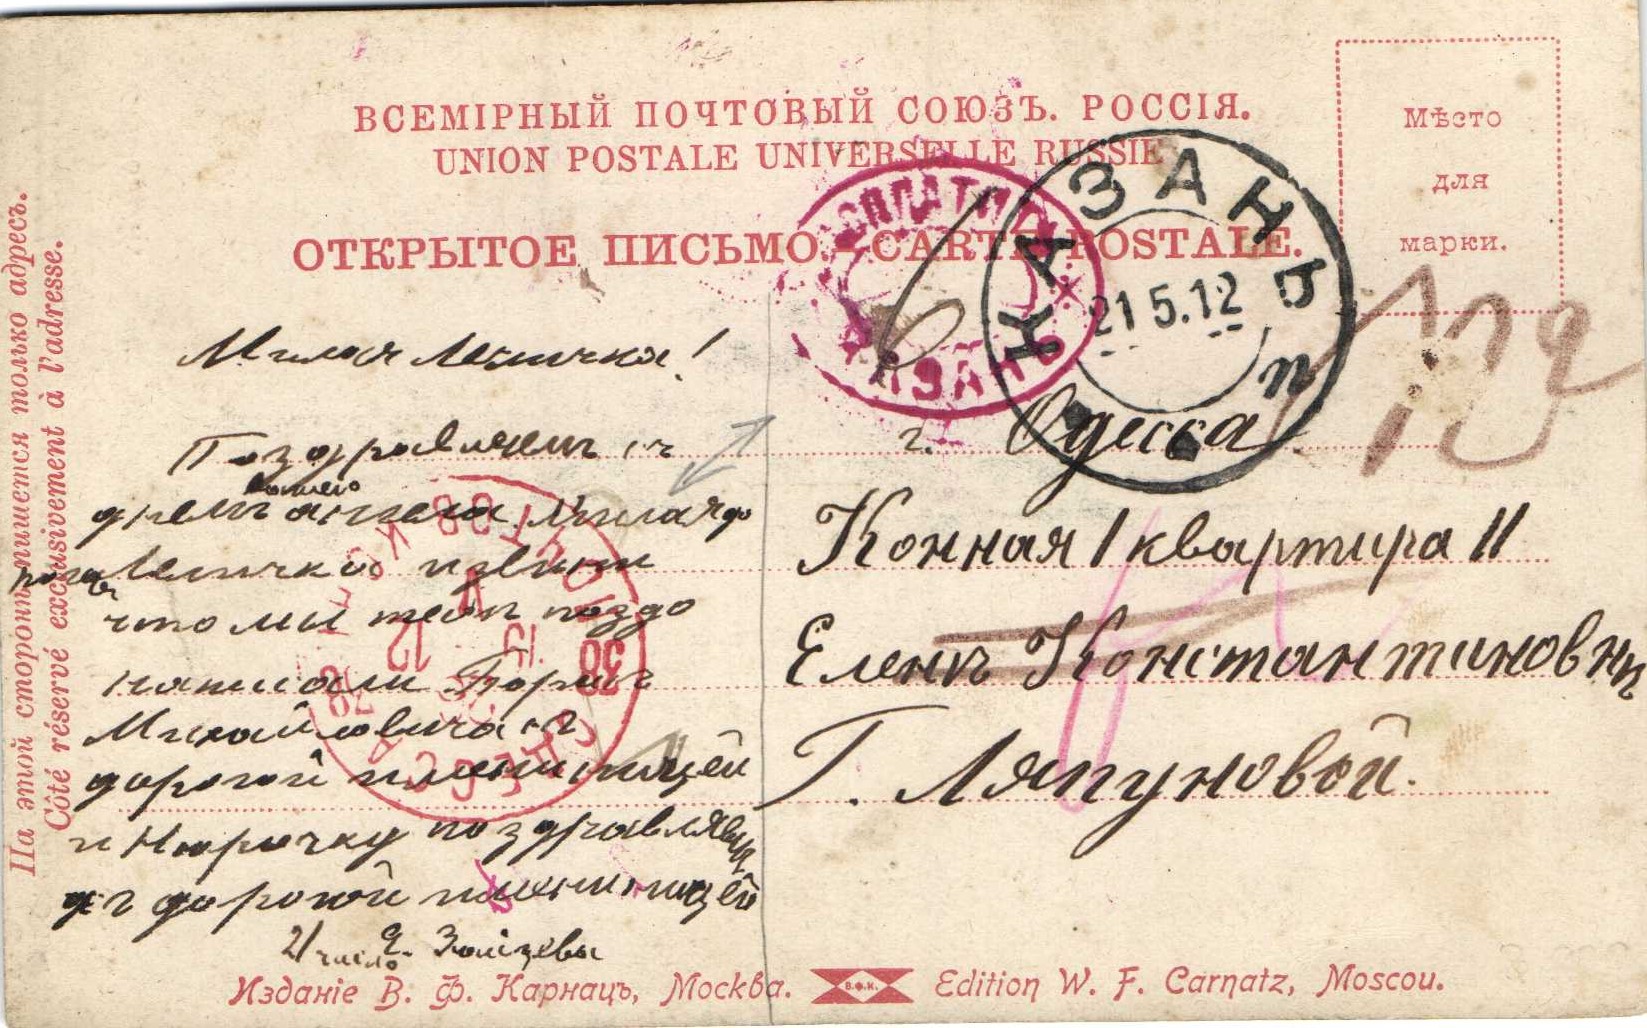 ВСЕМІРНЫЙ ПОЧТОВЫЙ СОЮЗЪ. РОССІЯ.
UNION POSTALE UNIVERSELLE RUSSIE
ОТКРЫТОЕ ПИСЬМО. – CARTE POSTALE.
Мѣсто
для
марки.
На этой сторонѣ пишется только адресъ.
Côté réservé exclusivement à l'adresse.
КАЗАНЬ
21 5.12
КАЗАНЬ
ОДЕССА
г. Одесса
Конная 1 квартира 11
Еленѣ Константиновнѣ
Г. Ляпуновой.
Милая Леличка!
Поздравляемъ съ
днемъ вашего ангела. Милая до
рогая Леличка извини
что мы тебѣ поздо
написали Бориса
Михайловича съ
дорогой имянинницей
и Нюрочку поздравляемъ
съ дорогой имянинницей
21 число Я. Зайцевы
Изданіе В. Ф. Карнацъ, Москва.
В.Ф.К.
Edition W. F. Carnatz, Moscou.